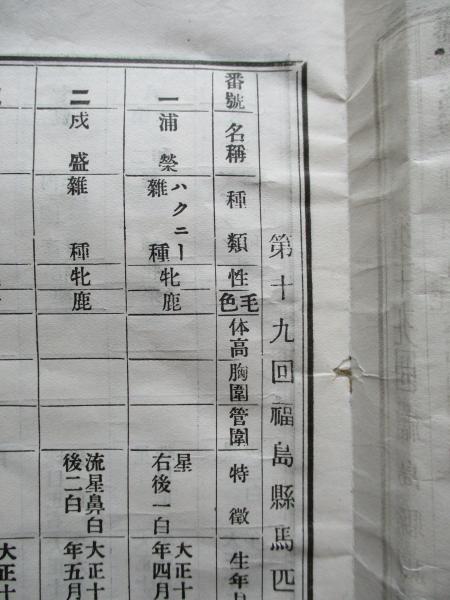 第十九回福島縣馬匹
番號 名稱 種類 性 毛色 体高 胸圍 管圍 特徵 生年月
一 浦榮 ハクニー雜種 牝 鹿 星右後一白 大正十年四月
二 戍盛 雜種 牝 鹿 流星鼻白後二白 大正十年五月
大正十